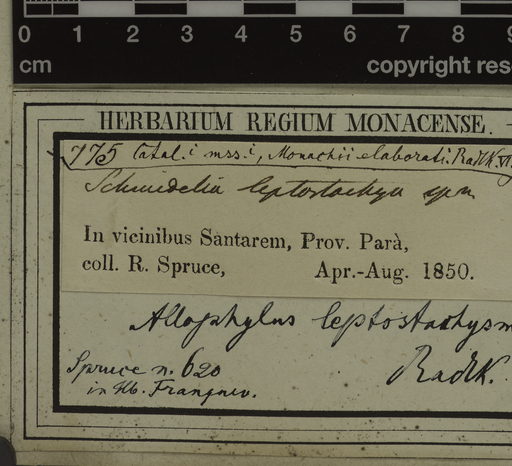 0 1 2 3 4 5 6 7 8 9
cm copyright res
HERBARIUM REGIUM MONACENSE.
775 Catal. i mss. i, Monachii elaborati. Radlk. VI.
Schmidelia leptostachya sp n
In vicinibus Santarem, Prov. Parà,
coll. R. Spruce, Apr.-Aug. 1850.
Allophylus leptostachys m
Spruce n. 620 Radlk.
in Hb. Franquev.